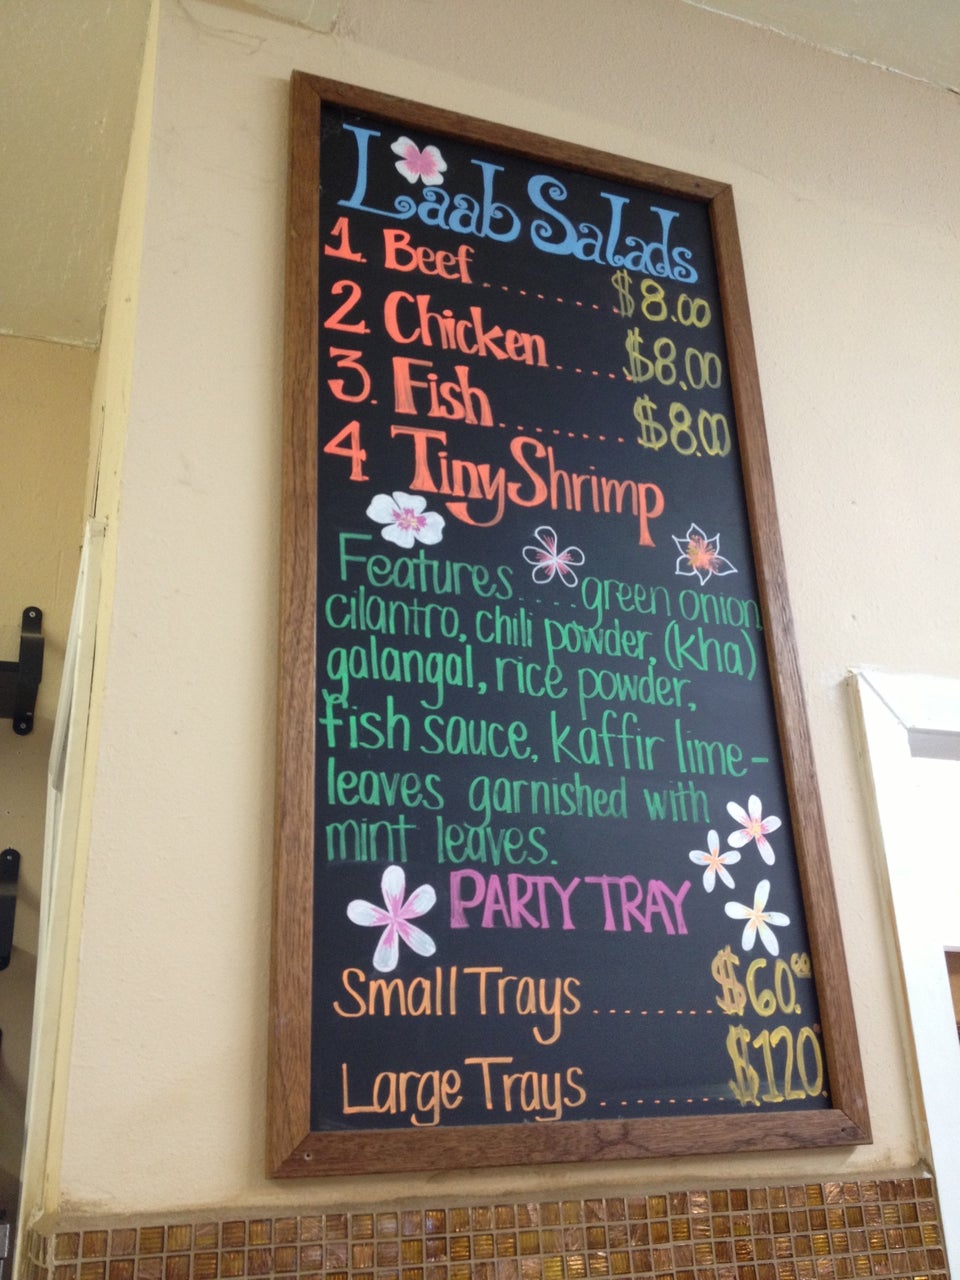 Laab Salads
1. Beef........$8.00
2. Chicken......$8.00
3. Fish........$8.00
4 Tiny Shrimp
Features....green onion
cilantro, chili powder, (kha)
galangal, rice powder,
fish sauce, kaffir lime-
leaves garnished with
mint leaves.
PARTY TRAY
Small Trays........$60.00
Large Trays........$120.